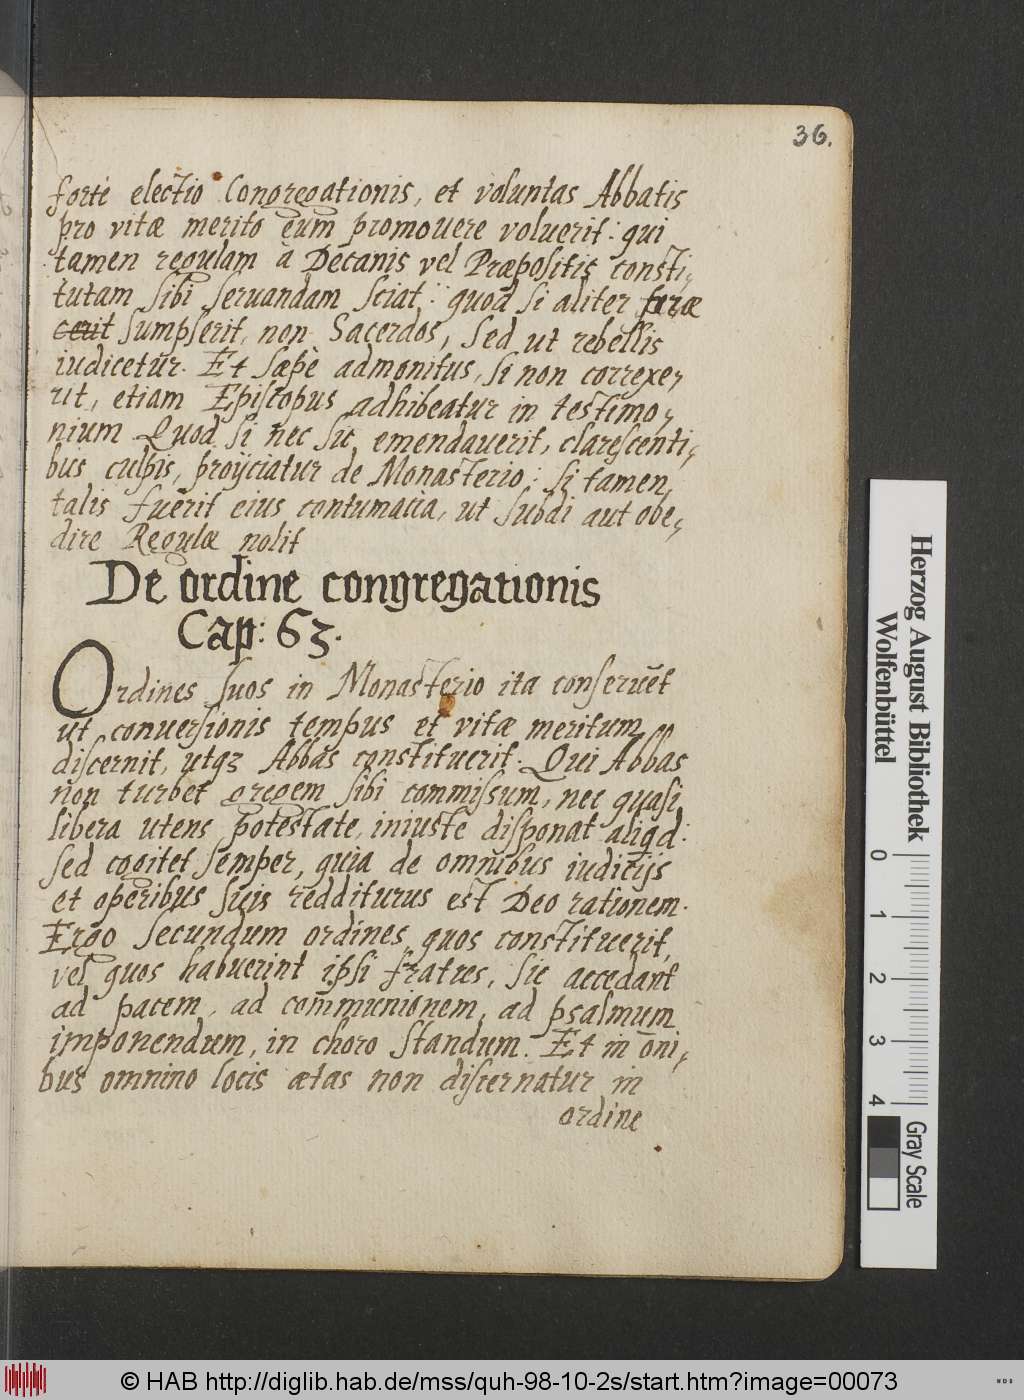 36.
forte electio Congregationis, et voluntas Abbatis
pro vitæ merito eum promouere voluerit: qui
tamen regulam à Decanis vel Præpositis consti-
tutam sibi seruandam sciat: quod si aliter
cerit sumpserit, non Sacerdos, sed ut rebellis
iudicetur. Et sæpè admonitus, si non correxe-
rit, etiam Episcopus adhibeatur in testimo-
nium Quod si nec sic emendauerit, clarescenti-
bus culpis, proijciatur de Monasterio: si tamen,
talis fuerit eius contumacia, ut subdi aut obe-
dire Regulæ nolit
De ordine congregationis
Cap: 63.
Ordines suos in Monasterio ita conseruēt
ut conuersionis tempus et vitæ meritum
discernit, utqз Abbas constituerit. Qui Abbas
non turbet gregem sibi commissum, nec quasi
libera utens potestate, iniuste disponat aliqd:
sed cogitet semper, quia de omnibus iudicijs
et operibus suis redditurus est Deo rationem.
Ergo secundum ordines, quos constituerit,
vel quos habuerint ipsi fratres, sic accedant
ad pacem, ad communionem, ad psalmum
imponendum, in choro standum. Et in oni-
bus omnino locis ætas non discernatur in
ordine
Herzog August Bibliothek
Wolfenbüttel
0 1 2 3 4
Gray Scale
© HAB http://diglib.hab.de/mss/quh-98-10-2s/start.htm?image=00073